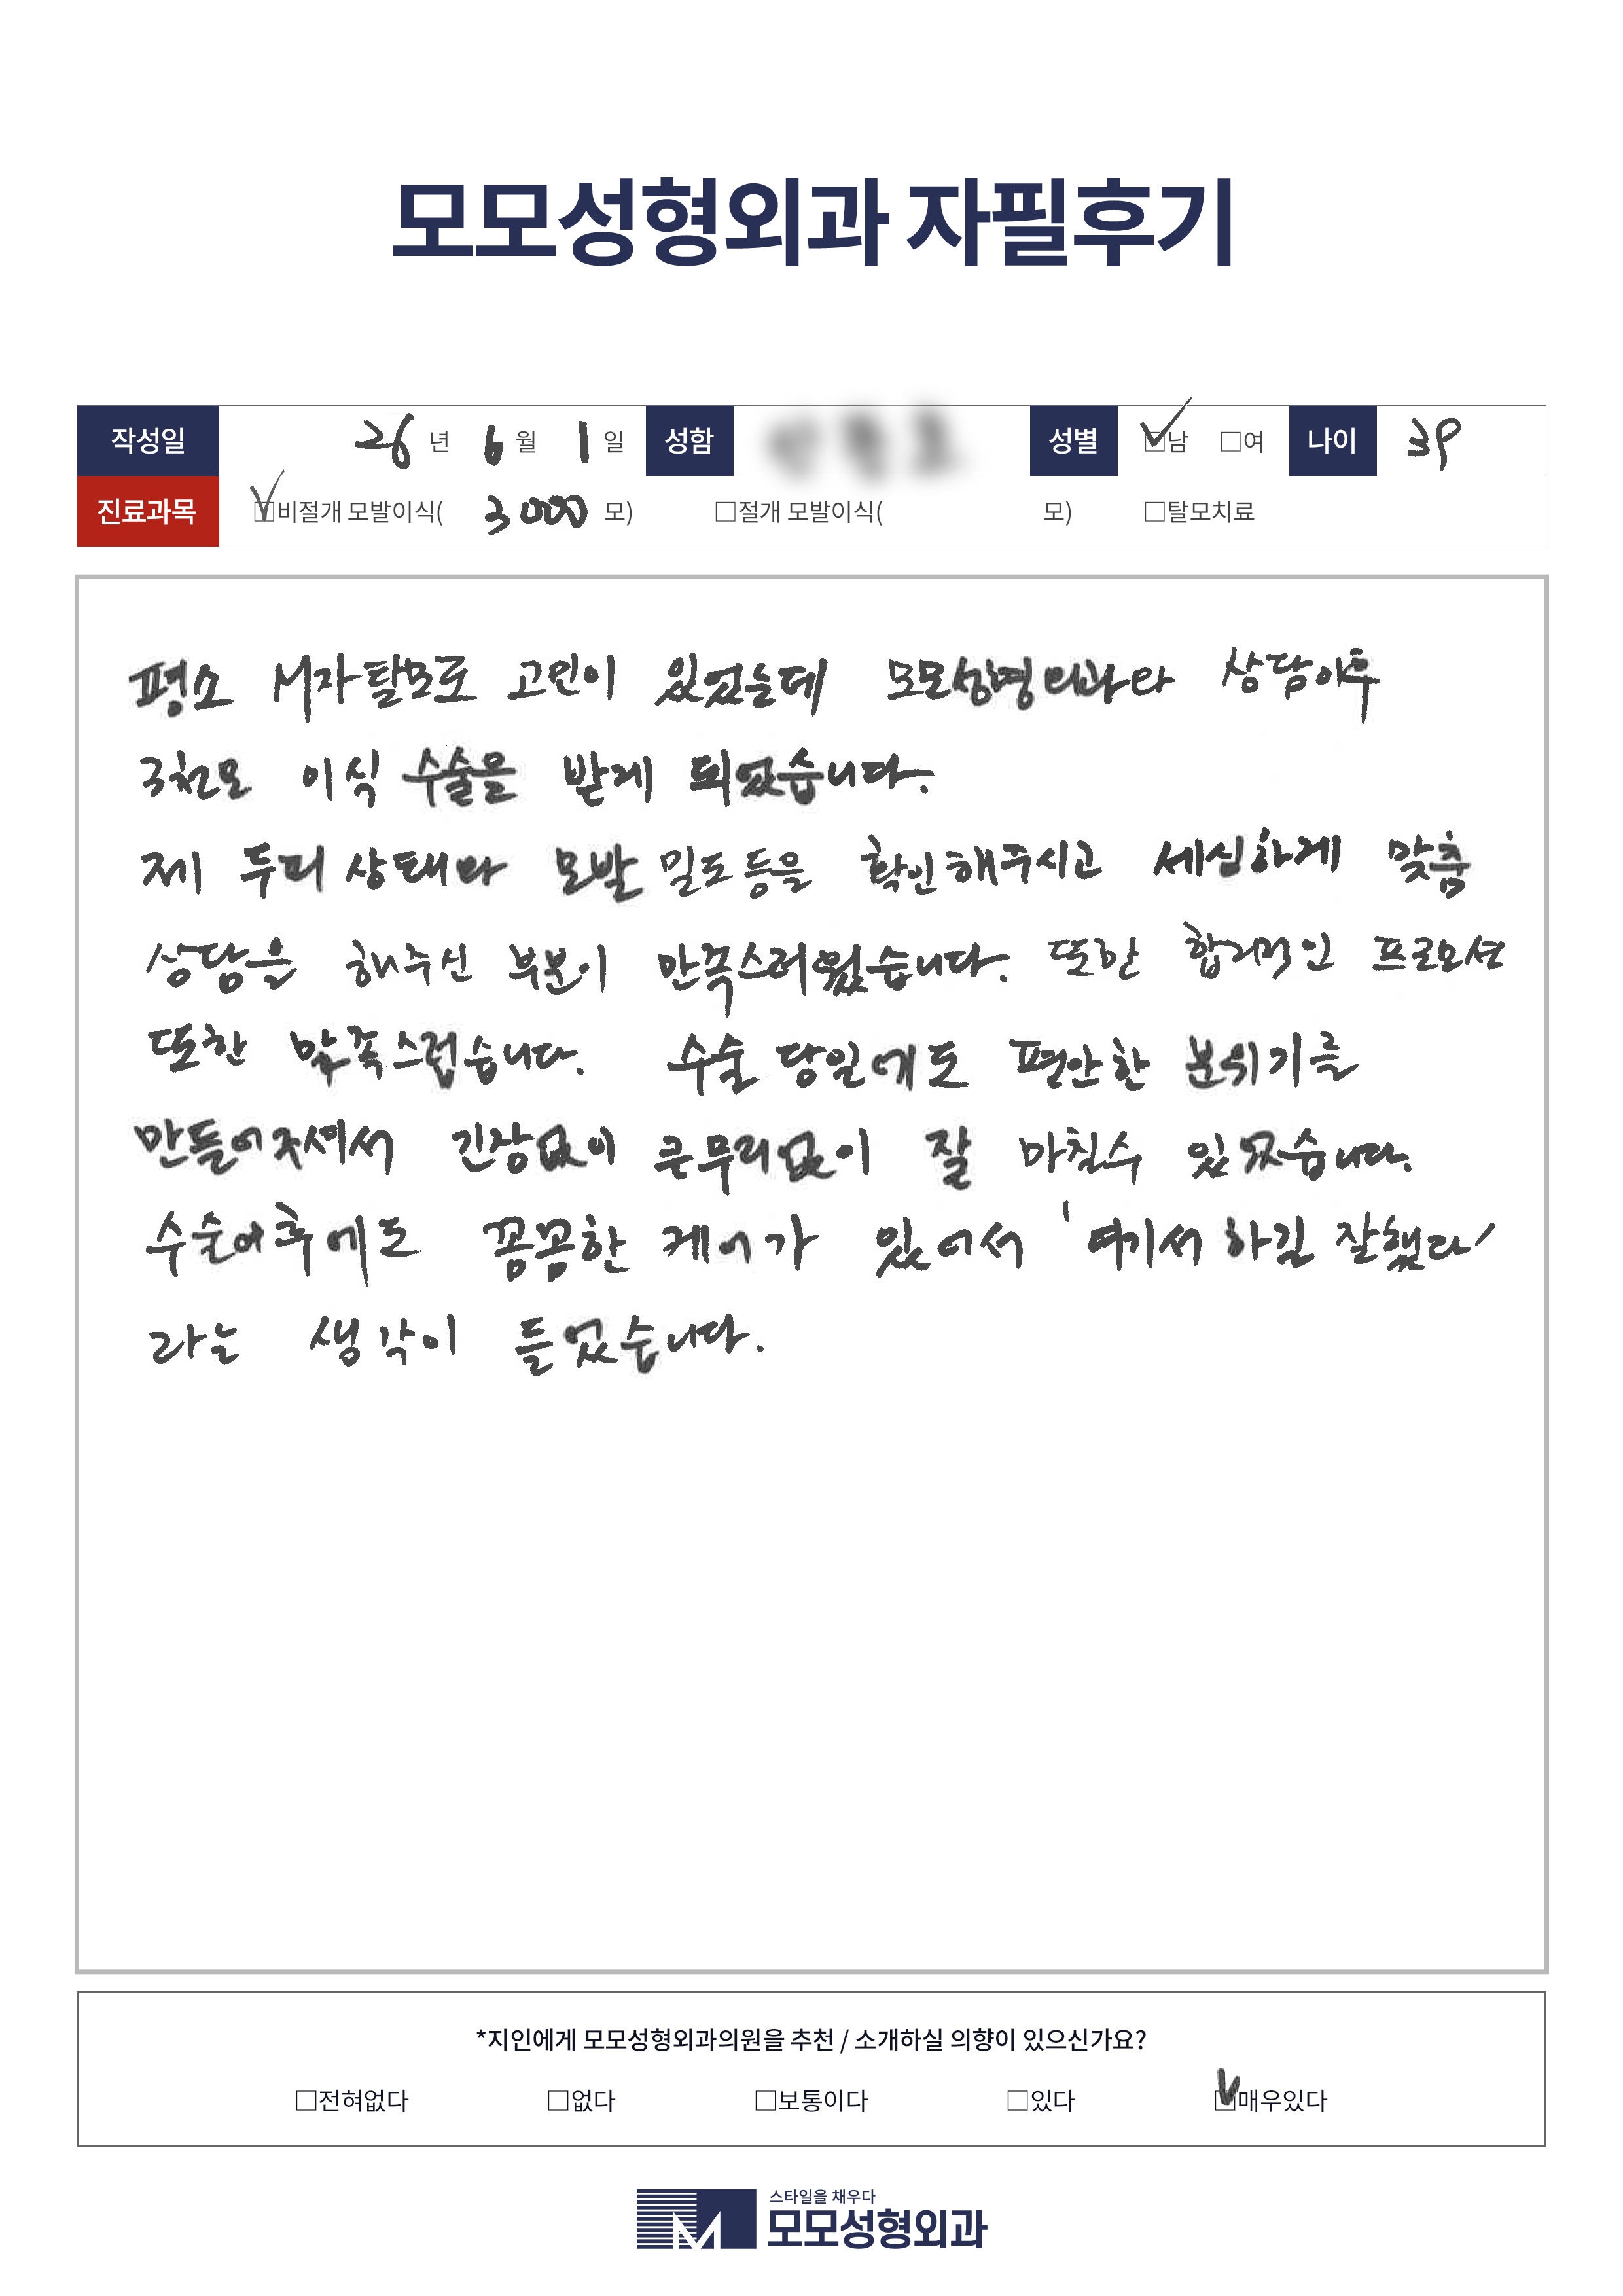 모모성형외과 자필후기
작성일 26 년 6 월 1 일 성함 성별 ☑남 □여 나이 39
진료과목 ☑비절개 모발이식( 3000 모) □절개 모발이식( 모) □탈모치료
평소 M자탈모로 고민이 있었는데 모모성형외과와 상담이후
3천모 이식 수술을 받게 되었습니다.
제 두피 상태와 모발 밀도등을 확인해주시고 세심하게 맞춤
상담을 해주신 부분이 만족스러웠습니다. 또한 합리적인 프로모션
또한 만족스럽습니다. 수술 당일에도 편안한 분위기를
만들어주셔서 긴장없이 큰무리없이 잘 마칠수 있었습니다.
수술이후에도 꼼꼼한 케어가 있어서 '여기서 하길 잘했다'
라는 생각이 들었습니다.
*지인에게 모모성형외과의원을 추천 / 소개하실 의향이 있으신가요?
□전혀없다 □없다 □보통이다 □있다 ☑매우있다
스타일을 채우다
모모성형외과